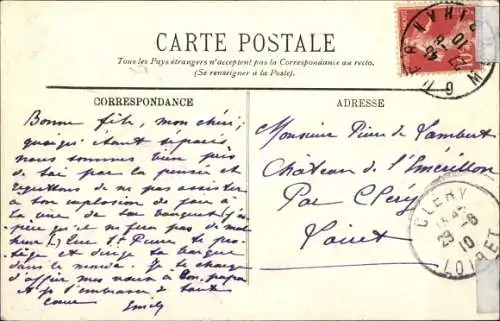 CARTE POSTALE
Tous les Pays étrangers n'acceptent pas la Correspondance au recto.
(Se renseigner à la Poste).
CORRESPONDANCE
Bonne fête, mon chéri,
quoique étant séparés
nous sommes bien près
de toi par la pensée et
regrettons de ne pas assister
à ton explosion de joie à
la vue de ton bouquet (j'es
père qu'il ne fera pas de mal
heur). Que St Pierre te pro
tège et dirige ta barque
dans le monde. Je te charge
d'offrir mes vœux à bon papa
et je t'embrasse de tout
cœur Emily
ADRESSE
Monsieur Pierre de Lambert
Château de l'Emérillon
Par Cléry
Loiret
CLERY
29 -6
10
LOIRET